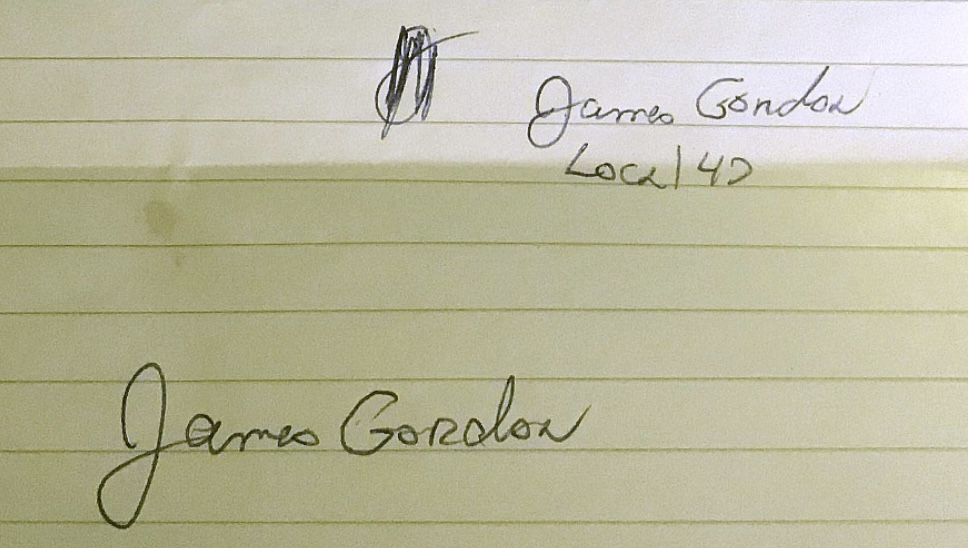 James Gordon
Local 42
James Gordon